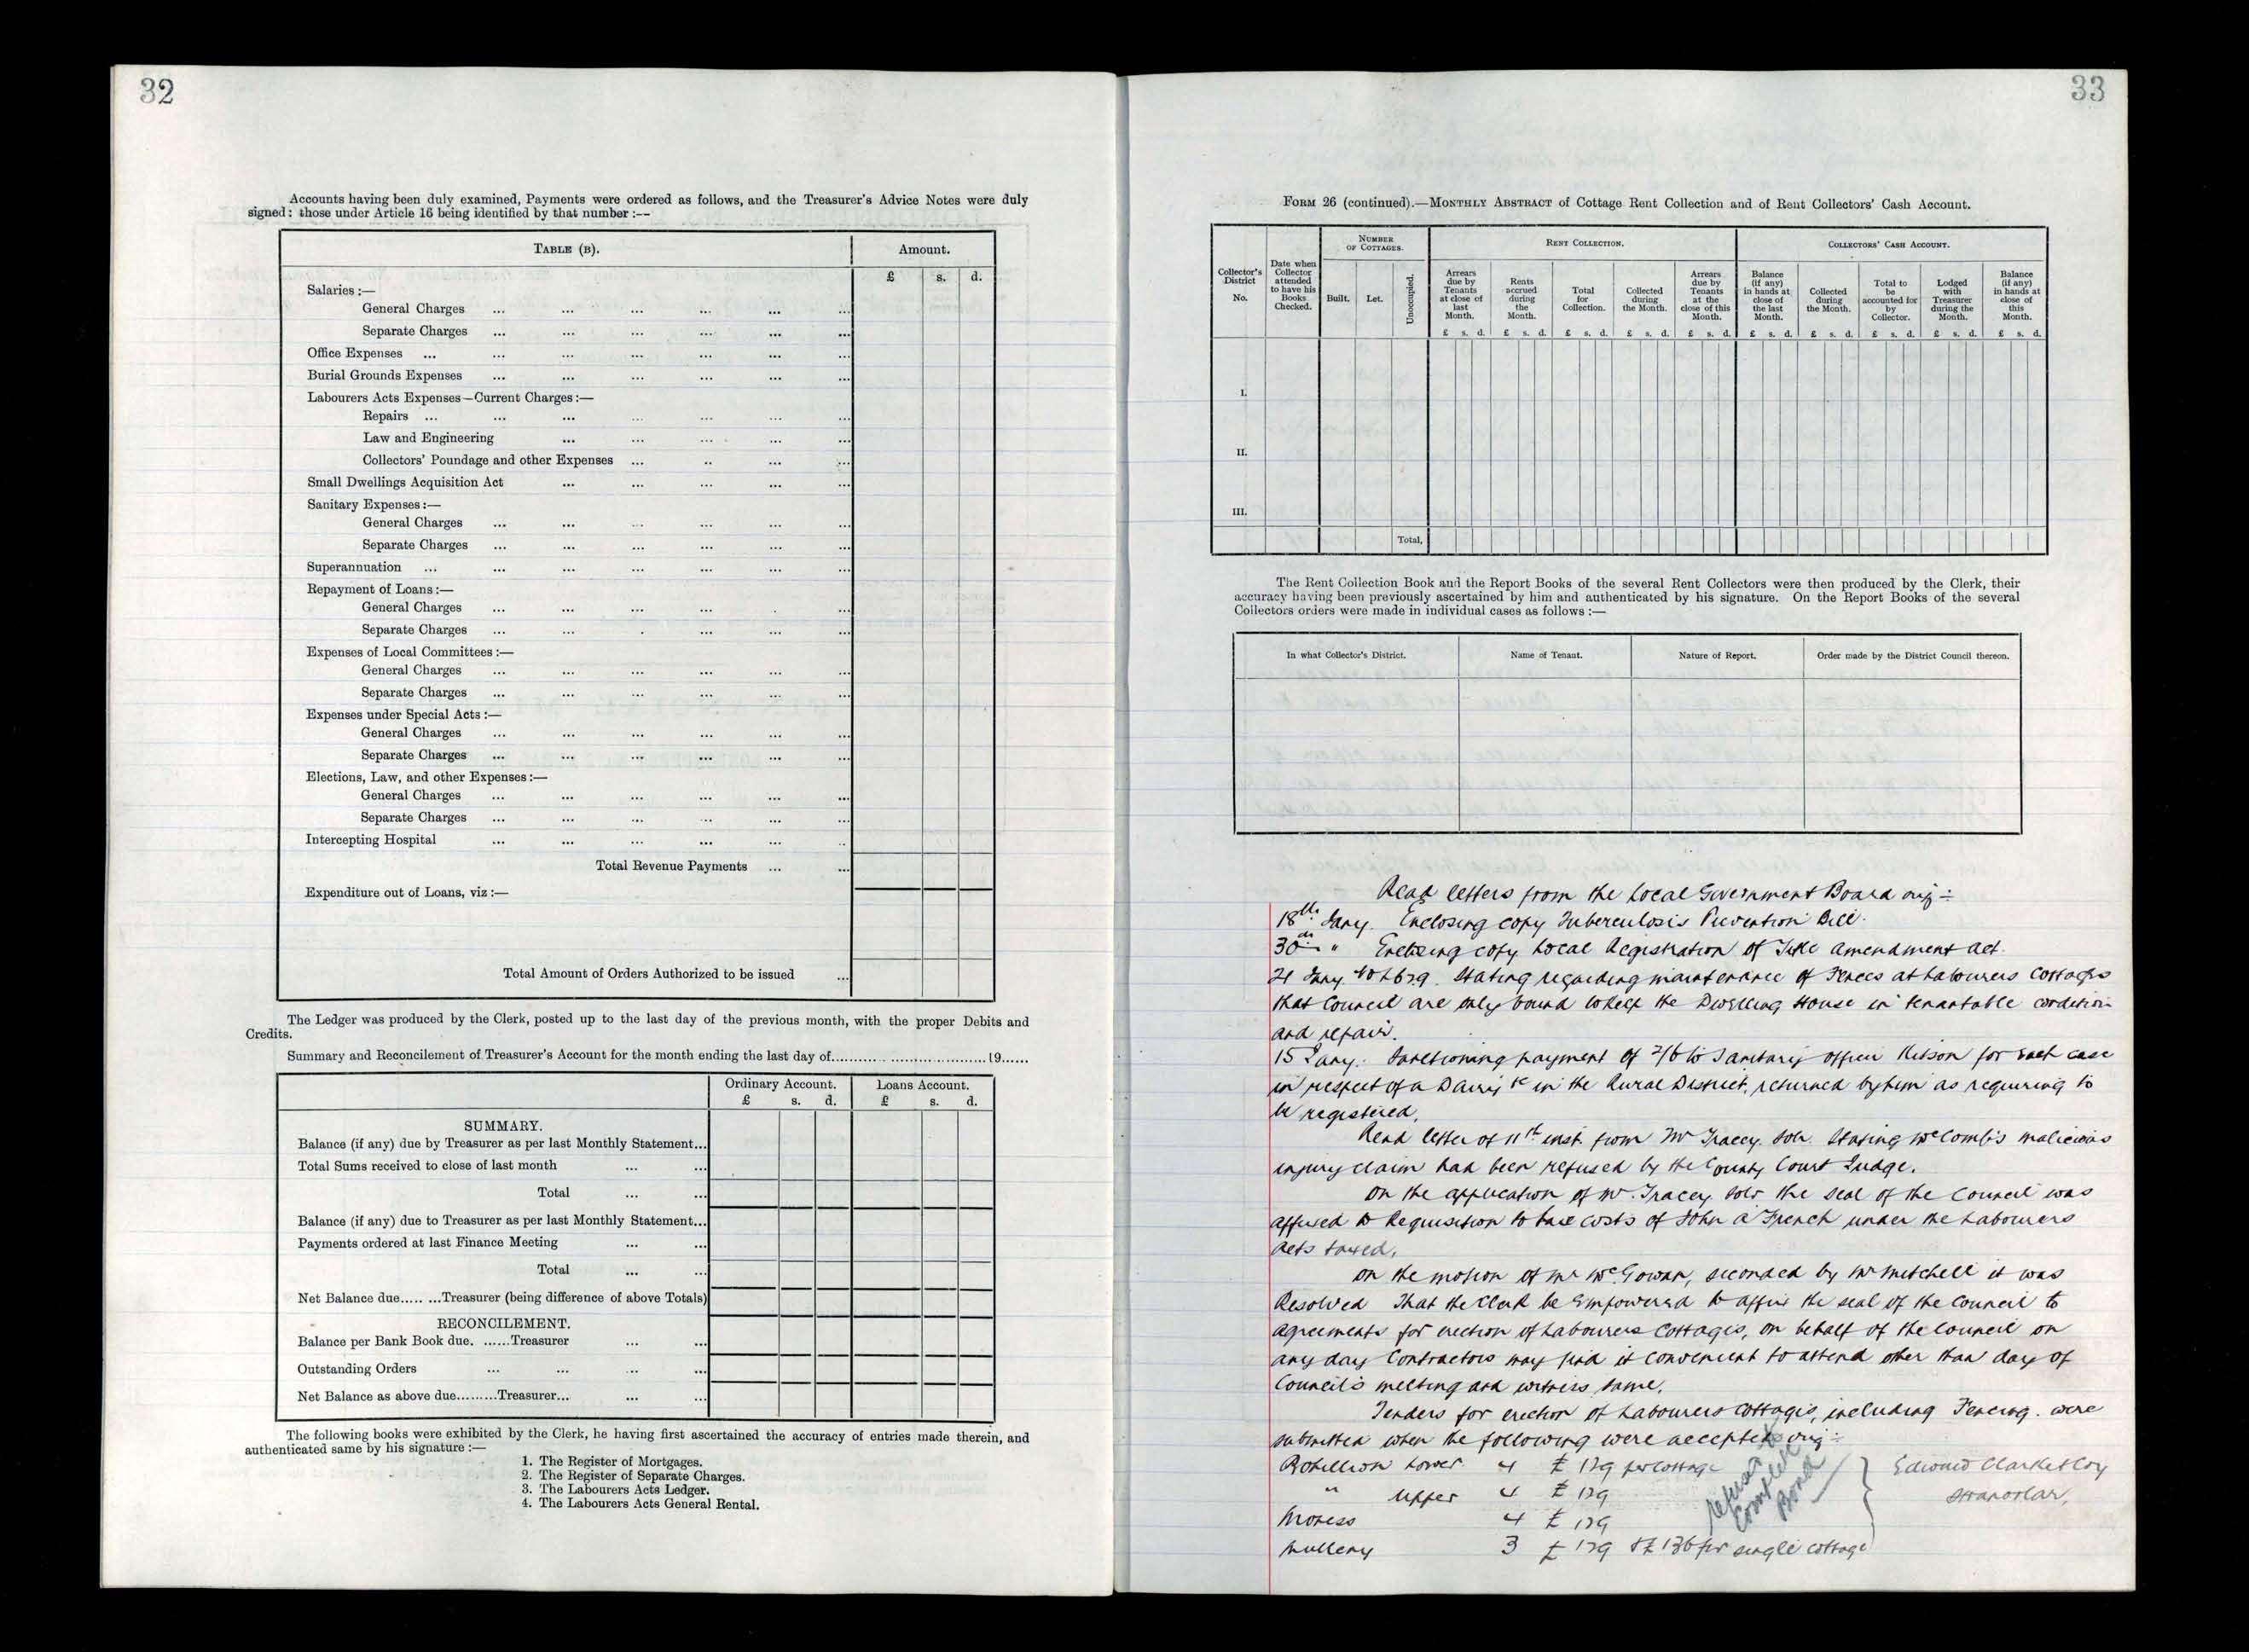 32
Accounts having been duly examined, Payments were ordered as follows, and the Treasurer's Advice Notes were duly
signed: those under Article 16 being identified by that number :--
TABLE (B). Amount.
£ s. d.
Salaries :—
General Charges ... ... ... ... ... ...
Separate Charges ... ... ... ... ... ...
Office Expenses ... ... ... ... ... ...
Burial Grounds Expenses ... ... ... ... ... ...
Labourers Acts Expenses—Current Charges :—
Repairs ... ... ... ... ... ... ...
Law and Engineering ... ... ... ... ...
Collectors' Poundage and other Expenses ... .. ... ...
Small Dwellings Acquisition Act ... ... ... ... ...
Sanitary Expenses :—
General Charges ... ... ... ... ... ...
Separate Charges ... ... ... ... ... ...
Superannuation ... ... ... ... ... ... ...
Repayment of Loans :—
General Charges ... ... ... ... . ...
Separate Charges ... ... . ... ... ...
Expenses of Local Committees :—
General Charges ... ... ... ... ... ...
Separate Charges ... ... ... ... ... ...
Expenses under Special Acts :—
General Charges ... ... ... ... ... ...
Separate Charges ... ... ... ... ... ...
Elections, Law, and other Expenses :—
General Charges ... ... ... ... ... ...
Separate Charges ... ... ... ... ... ...
Intercepting Hospital ... ... ... ... ... ..
Total Revenue Payments ... ...
Expenditure out of Loans, viz :—
Total Amount of Orders Authorized to be issued ...
The Ledger was produced by the Clerk, posted up to the last day of the previous month, with the proper Debits and
Credits.
Summary and Reconcilement of Treasurer's Account for the month ending the last day of.................................19......
Ordinary Account. Loans Account.
£ s. d. £ s. d.
SUMMARY.
Balance (if any) due by Treasurer as per last Monthly Statement...
Total Sums received to close of last month ... ...
Total ... ...
Balance (if any) due to Treasurer as per last Monthly Statement...
Payments ordered at last Finance Meeting ... ...
Total ... ...
Net Balance due..... ...Treasurer (being difference of above Totals)
RECONCILEMENT.
Balance per Bank Book due. ......Treasurer ... ...
Outstanding Orders ... ... ... ...
Net Balance as above due.........Treasurer... ... ...
The following books were exhibited by the Clerk, he having first ascertained the accuracy of entries made therein, and
authenticated same by his signature :—
1. The Register of Mortgages.
2. The Register of Separate Charges.
3. The Labourers Acts Ledger.
4. The Labourers Acts General Rental.
33
FORM 26 (continued).—MONTHLY ABSTRACT of Cottage Rent Collection and of Rent Collectors' Cash Account.
Collector's District No.
Date when Collector attended to have his Books Checked.
NUMBER OF COTTAGES.
Built. Let. Unoccupied.
RENT COLLECTION.
Arrears due by Tenants at close of last Month.
Rents accrued during the Month.
Total for Collection.
Collected during the Month.
Arrears due by Tenants at the close of this Month.
COLLECTORS' CASH ACCOUNT.
Balance (if any) in hands at close of the last Month.
Collected during the Month.
Total to be accounted for by Collector.
Lodged with Treasurer during the Month.
Balance (if any) in hands at close of this Month.
£ s. d. £ s. d. £ s. d. £ s. d. £ s. d. £ s. d. £ s. d. £ s. d. £ s. d. £ s. d.
I.
II.
III.
Total,
The Rent Collection Book and the Report Books of the several Rent Collectors were then produced by the Clerk, their
accuracy having been previously ascertained by him and authenticated by his signature. On the Report Books of the several
Collectors orders were made in individual cases as follows :—
In what Collector's District. Name of Tenant. Nature of Report. Order made by the District Council thereon.
Read letters from the Local Government Board viz:-
18th Jany. Enclosing copy Tuberculosis Prevention Bill.
30th " Enclosing copy Local Registration of Title Amendment Act.
21 Jany. Stating regarding maintenance of Fences at Labourers Cottages
that Council are only bound to keep the Dwelling House in tenantable condition
and repair.
15 Jany. Sanctioning payment of 2/6 to Sanitary officer Kilson for each case
in respect of a Dairy &c in the Rural District, returned by him as requiring to
be registered.
Read letter of 11th inst. from Mr Tracey. Solr. stating McComb's malicious
injury claim had been refused by the County Court Judge.
On the application of Mr. Tracey Solr the seal of the Council was
affixed to Requisition to have costs of John A French under the Labourers
Acts taxed.
On the motion of Mr McGowan, seconded by Mr Mitchell it was
Resolved That the Clerk be empowered to affix the seal of the Council to
agreements for erection of Labourers Cottages, on behalf of the Council on
any day Contractors may find it convenient to attend other than day of
Council's meeting and witness same.
Tenders for erection of Labourers Cottages, including Fencing. were
submitted when the following were accepted viz:-
Lower 4 £129 per cottage
" Upper 4 £129
Moness 4 £129
Mulleny 3 £129 & £136 for single cottage
Edward Clarke & Coy
Stranorlar.
refused to
complete
Bond